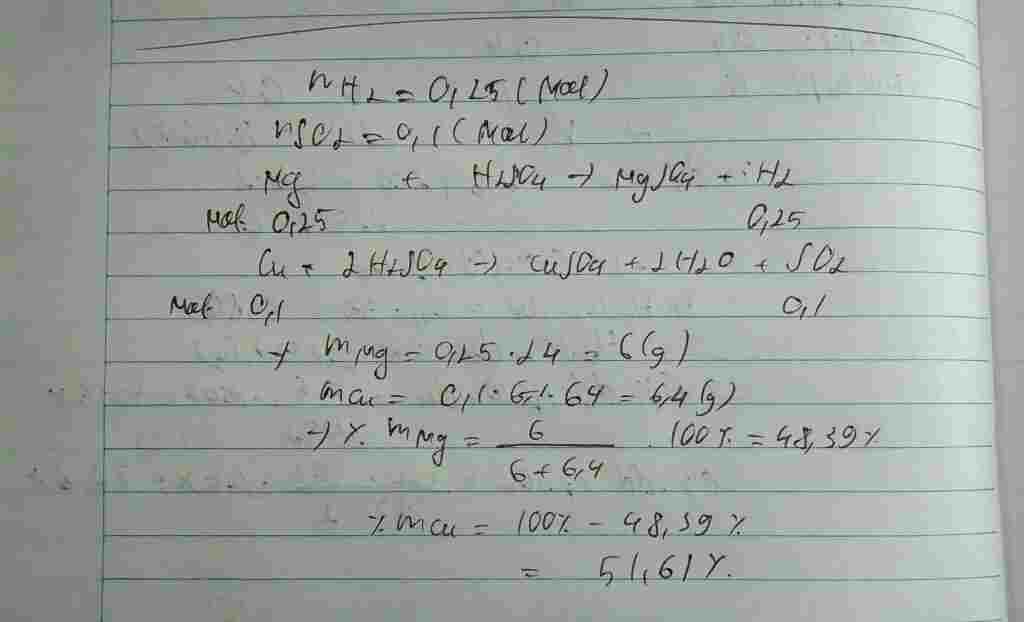 nH2 = 0,25 (Mol)
nSO2 = 0,1 (Mol)
Mg + H2SO4 → MgSO4 + H2
Mol: 0,25 0,25
Cu + 2H2SO4 → CuSO4 + 2H2O + SO2
Mol: 0,1 0,1
→ mMg = 0,25 . 24 = 6(g)
mCu = 0,1 . 64 = 6,4(g)
→ % mMg = 6 / (6 + 6,4) . 100% = 48,39%
% mCu = 100% - 48,39%
= 51,61%.